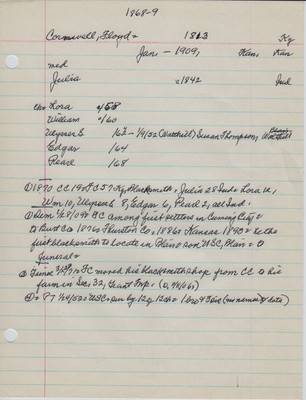 1868-9
Cornwell, Floyd = 1813 Ky
Jan. - 1909, Kan. Kan
med
Julia c1842 Ind
chn Lora c/58
William c/60
Ulysses S 162 - 1/9/52 Susan Thompson,
Edgar /64
Pearl /68
① 1870 CC 190 TC 57 Ky, Blacksmith, Julia 28 Ind = Lora 12,
Wm. 10, Ulysses 8, Edgar 6, Pearl 2, all Ind.
② Dem 1/28/09 BC among first settlers in Cuming City =
to Burt Co 1876 = Thurston Co, 1886 Kansas 1890 = he the
first blacksmith to locate in Blair = son USC, Blair = ①
General =
③ Times 3/ /70 TC moved his blacksmith shop from CC to his
farm in Sec. 32, Grant Twp. (0,44/66)
④ = P7 1/24/52 = USC = sur by 12g 12ch = 1 bro 4 sis (no names or date)